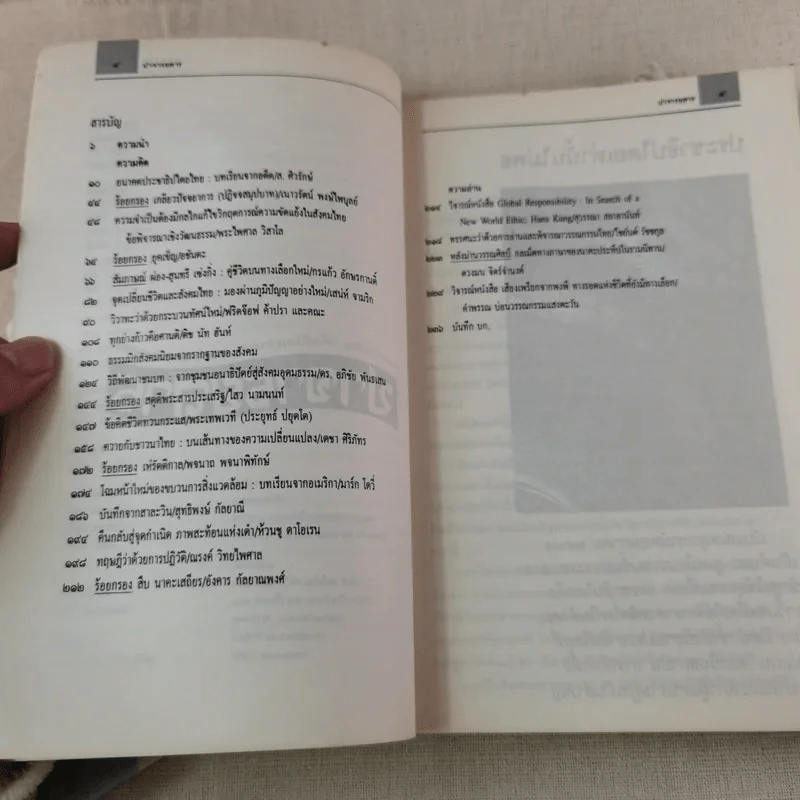 ๔ ปาจารยสาร
สารบัญ
๖ ความนำ
ความคิด
๑๐ อนาคตประชาธิปไตยไทย : บทเรียนจากอดีต/ส. ศิวรักษ์
๔๔ ร้อยกรอง เกลียวรัจจอาการ (ปฏิจจสมุปบาท)/เนาวรัตน์ พงษ์ไพบูลย์
๔๘ ความจำเป็นต้องมีกลไกแก้ไขวิกฤตการณ์ความขัดแย้งในสังคมไทย
ข้อพิจารณาเชิงวัฒนธรรม/พระไพศาล วิสาโล
๖๔ ร้อยกรอง ยุคเข็ญ/อชันตะ
๖๖ สัมภาษณ์ ผ่อง-สุนทรี เซ่งกิ่ง : คู่ชีวิตบนทางเลือกใหม่/กรแก้ว อักษรกานดิ์
๘๒ จุดเปลี่ยนชีวิตและสังคมไทย : มองผ่านภูมิปัญญาอย่างใหม่/เสน่ห์ จามริก
๙๐ วิวาทะว่าด้วยกระบวนทัศน์ใหม่/ฟริตจ๊อฟ ค้าปรา และคณะ
๑๐๘ ทุกย่างก้าวคือศานติ/ติช นัท ฮันห์
๑๑๐ ธรรมมิกสังคมนิยมจากรากฐานของสังคม
๑๒๔ วิถีพัฒนาชนบท : จากชุมชนอนาธิปัตย์สู่สังคมอุดมธรรม/ดร. อภิชัย พันธเสน
๑๔๔ ร้อยกรอง สดุดีพระสารประเสริฐ/ไสว นามนนท์
๑๔๗ ข้อคิดชีวิตทวนกระแส/พระเทพเวที (ประยุทธ์ ปยุตโต)
๑๕๘ ควายกับชาวนาไทย : บนเส้นทางของความเปลี่ยนแปลง/เดชา ศิริภัทร
๑๗๒ ร้อยกรอง เห่รัตติกาล/พจนาถ พจนาพิทักษ์
๑๗๔ โฉมหน้าใหม่ของขบวนการสิ่งแวดล้อม : บทเรียนจากอเมริกา/มาร์ก โดวี่
๑๘๖ บันทึกจากสาละวิน/สุทธิพงษ์ กัลยาณี
๑๙๔ คืนกลับสู่จุดกำเนิด ภาพสะท้อนแห่งเต๋า/ห้วนชู ดาโอเรน
๑๙๘ ทฤษฎีว่าด้วยการปฏิวัติ/ณรงค์ วิทยไพศาล
๒๑๒ ร้อยกรอง สืบ นาคะเสถียร/อังคาร กัลยาณพงศ์
ปาจารยสาร ๕
ความอ่าน
๒๑๔ วิจารณ์หนังสือ Global Responsibility : In Search of a
New World Ethic, Hans Kung/สุวรรณา สถาอานันท์
๒๑๘ ทรรศนะว่าด้วยการอ่านและพิจารณาวรรณกรรมไทย/ไชยันต์ รัชชกูล
๒๒๓ หลังม่านวรรณศิลป์ กลเม็ดทางภาษาของนาคะประทีปในกามนิต/
ดวงมน จิตร์จำนงค์
๒๒๘ วิจารณ์หนังสือ เสียงเพรียกจากพงพี ทางรอดแห่งชีวิตที่ยังมีทางเลือก/
คำพรรณ บ่อนวรรณกรรมแสงตะวัน
๒๓๖ บันทึก บก.